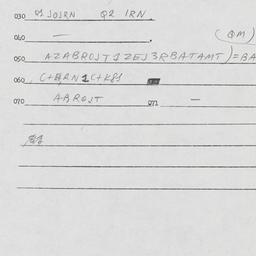 030 01 JOJRN Q2 IRN.
040 — .
(QM)
050 AZABROJT1ZEJ3RBATAMT)=BA
060 C+BRN1C+K81
070 ABROJT 071 —